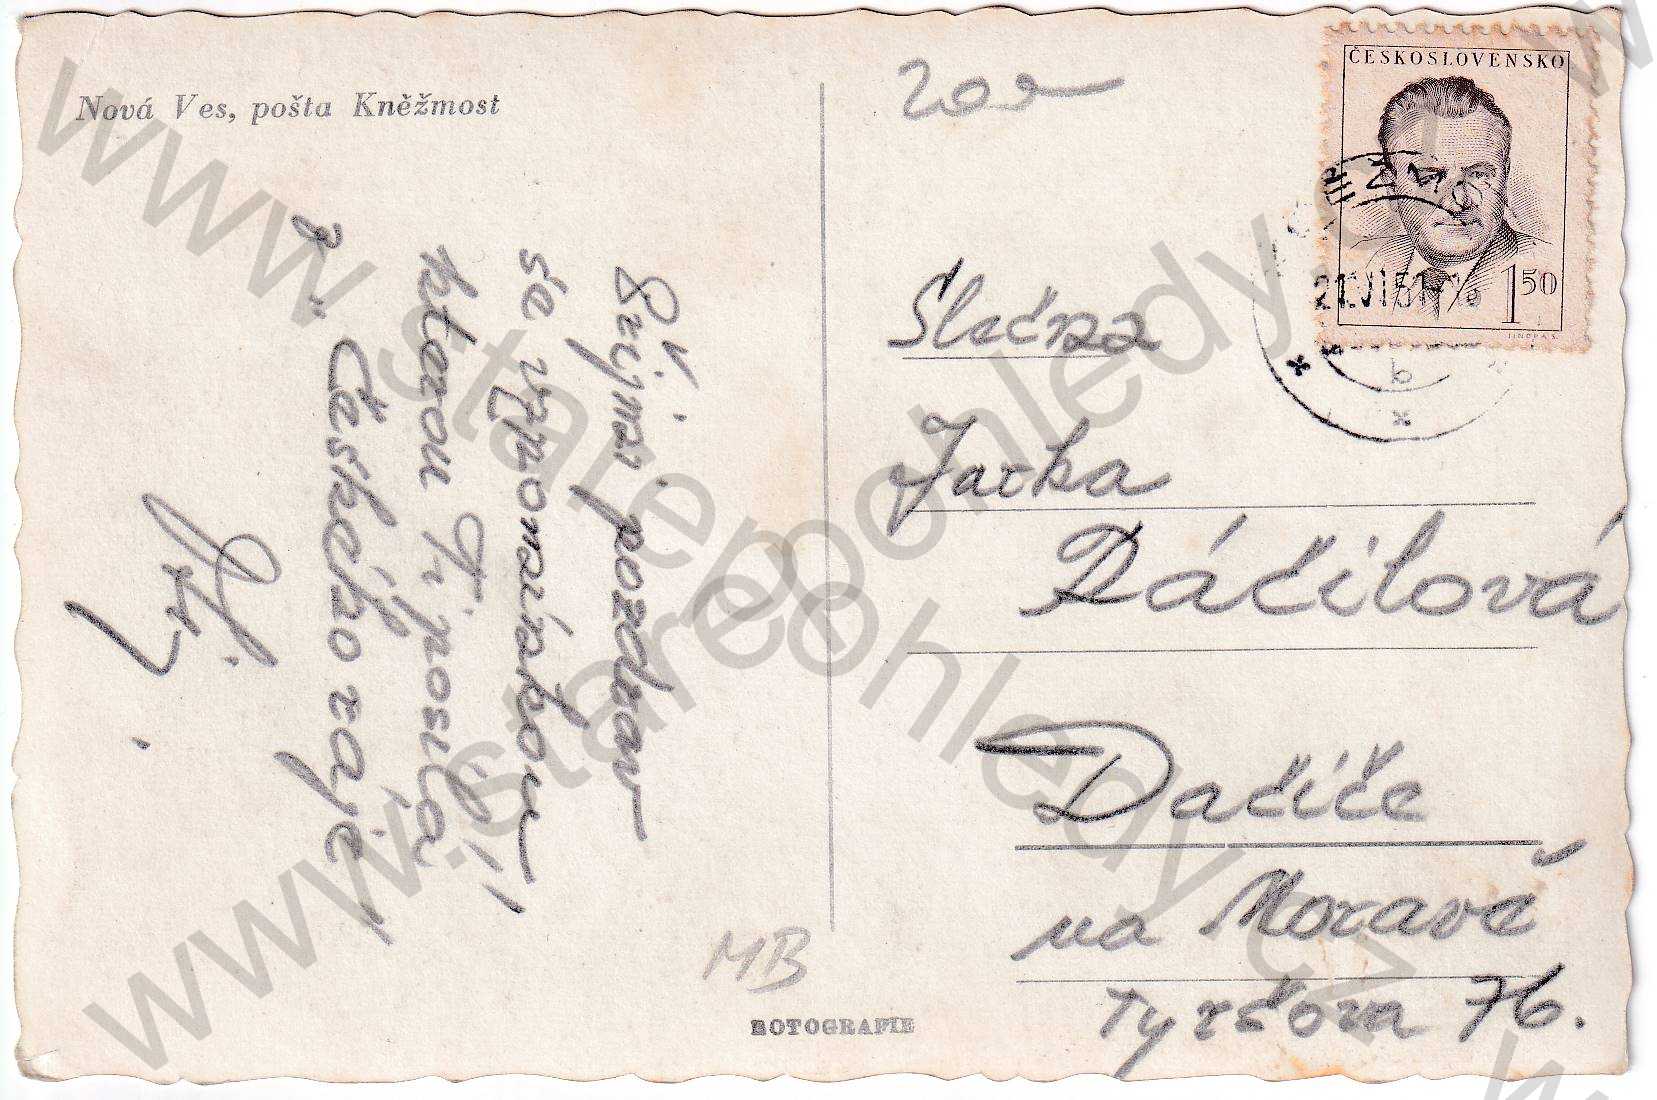 Nová Ves, pošta Kněžmost
Přijmi pozdrav
se vzpomínkou
kterou Ti posílá
z Českého ráje
Jiří
200
ČESKOSLOVENSKO
1 50
Slečna
Jarka
Dáčilová
Dačice
na Moravě
Tyršova 76.
MB
FOTOGRAFIE
www.starepohledy.cz
www.starepohledy.cz